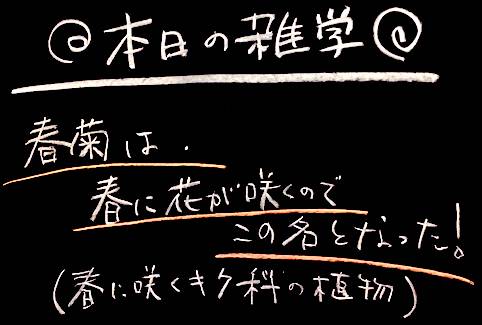 本日の雑学
春菊は、
春に花が咲くので
この名となった!
(春に咲くキク科の植物)